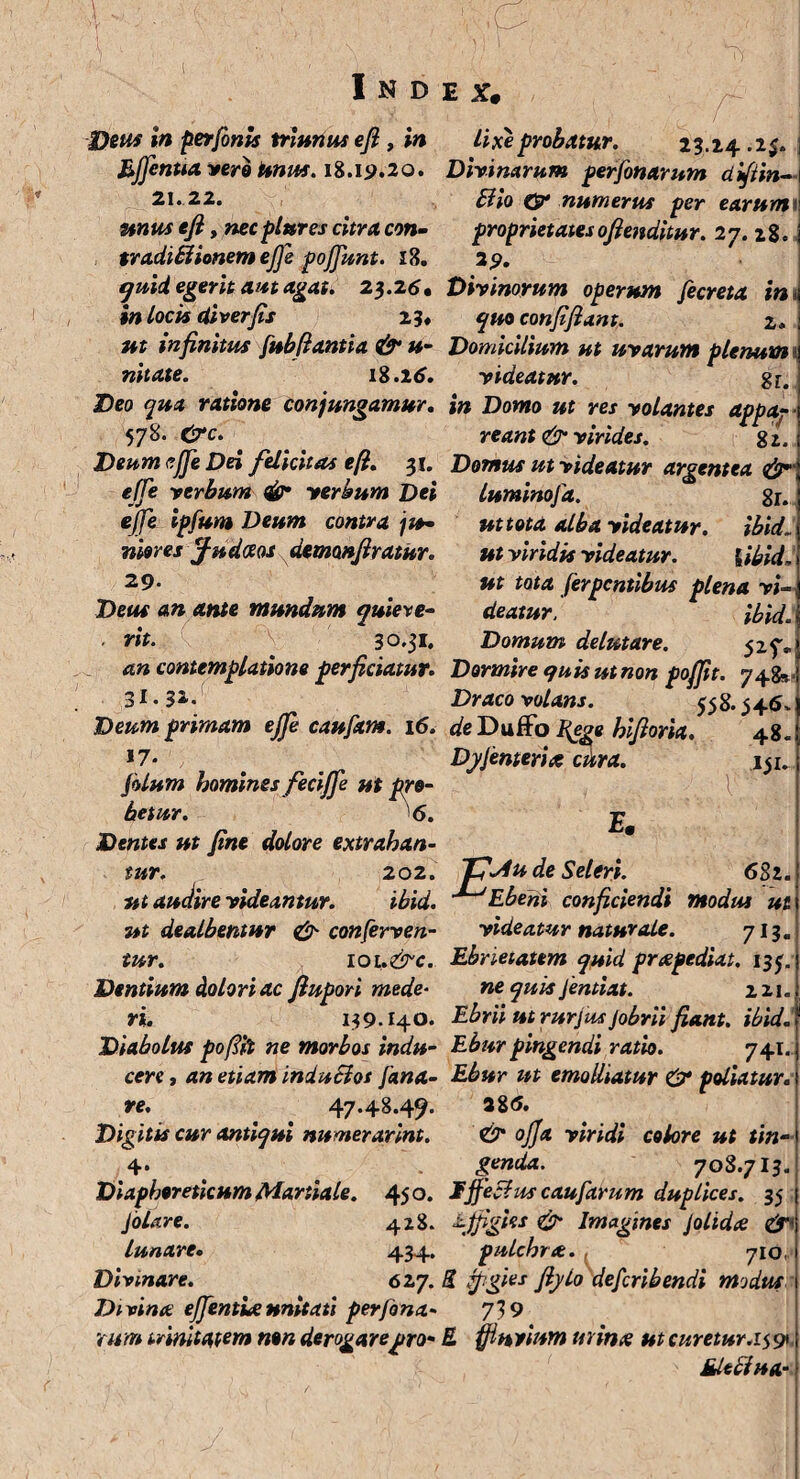 INDEX.
Deus in personis triunus est, in
Essentia verò unus. 18.19.20.
21.22.
unus est, nec plures citra con-
tradictionem esse possunt. 18.
quid egerit aut agat. 23.26.
in locis diversis 23.
ut infinitus substantia & u-
nitate. 18.26.
Deo qua ratione conjungamur.
578. &c.
Deum esse Dei felicitas est. 31.
esse verbum & verbum Dei
esse ipsum Deum contra ju-
niores Judæos demonstratur.
29.
Deus an ante mundum quieve-
rit. 30.31.
an contemplatione perficiatur.
31.32.
Deum primam esse causam. 16.
17.
solum homines fecisse ut pro-
betur. 6.
Dentes ut sine dolore extrahan-
tur. 202.
ut audire videantur. ibid.
ut dealbentur & conserven-
tur. 101.&c.
Dentium dolori ac stupori mede-
ri. 139.140.
Diabolus poßit ne morbos indu-
cere, an etiam inductos sana-
re. 47.48.49.
Digitis cur antiqui numerarint.
4.
Diaphoreticum Martiale. 450.
solare. 428.
lunare. 434.
Divinare. 627.
Divinæ essentiæ unitati persona-
rum trinitatem non derogare pro-
lixè probatur. 23.24.25.
Divinarum personarum distin-
ctio & numerus per earum
proprietates ostenditur. 27.28.
29.
Divinorum operum secreta in
quo consistant. 2.
Domicilium ut uvarum plenum
videatur. 81.
in Domo ut res volantes appa-
reant & virides. 82.
Domus ut videatur argentea &
luminosa. 81.
ut tota alba videatur. ibid.
ut viridis videatur. ibid.
ut tota serpentibus plena vi-
deatur. ibid.
Domum delutare. 525.
Dormire quis ut non possit. 748.
Draco volans. 558.546.
de Duffo Rege historia. 48.
Dysenteriæ cura. 151.
E.
EAu de Seleri. 682.
Ebeni conficiendi modus ut
videatur naturale. 713.
Ebrietatem quid præpediat. 135.
ne quis sentiat. 221.
Ebrii ut rursus sobrii fiant. ibid.
Ebur pingendi ratio. 741.
Ebur ut emolliatur & poliatur.
286.
& ossa viridi colore ut tin-
genda. 708.713.
Effectus causarum duplices. 35
Effigies & Imagines solidæ &
pulchræ. 710.
Effigies stylo describendi modus
739
Effluvium urinæ ut curetur. 159.
Electua-